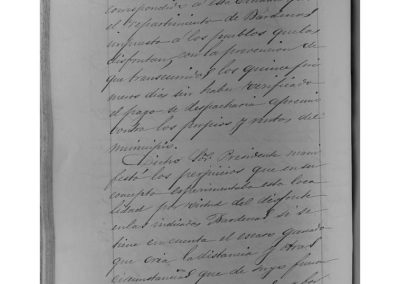 correspondido a este
el repartimiento de Bardenas
impuesto a los pueblos que las
disfrutan, con la prevencion de
que transcurridos los quince pri
meros dias sin haber verificado
el pago se despacharia apremio
contra los propios y rentas del
municipio.
Dicho Sor. Presidente mani
festó los perjuicios que en su
concepto esperimentaba esta loca
lidad por virtud del disfrute
en las indicadas Bardenas si se
tiene en cuenta el escaso ganado
que cria la distancia y otras
circunstancias que de suyo